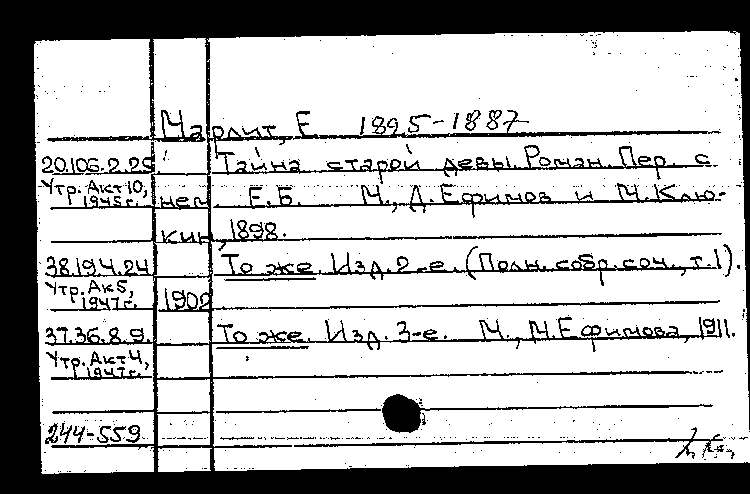 Марлит, Е. 1895-1887
20.106.2.25 Тайна старой девы. Роман. Пер. с
Утр. Акт 10, 1945г. нем. Е.Б. М., Д.Ефимов и М.Клю-
кин, 1898.
38.19.4.24 То же. Изд.2-е. (Полн. собр. соч., т.1).
Утр. Ак 5, 1947г. 1902
37.36.8.9. То же. Изд. 3-е. М., М.Ефимова, 1911.
Утр. Акт 4, 1947г.
244-559